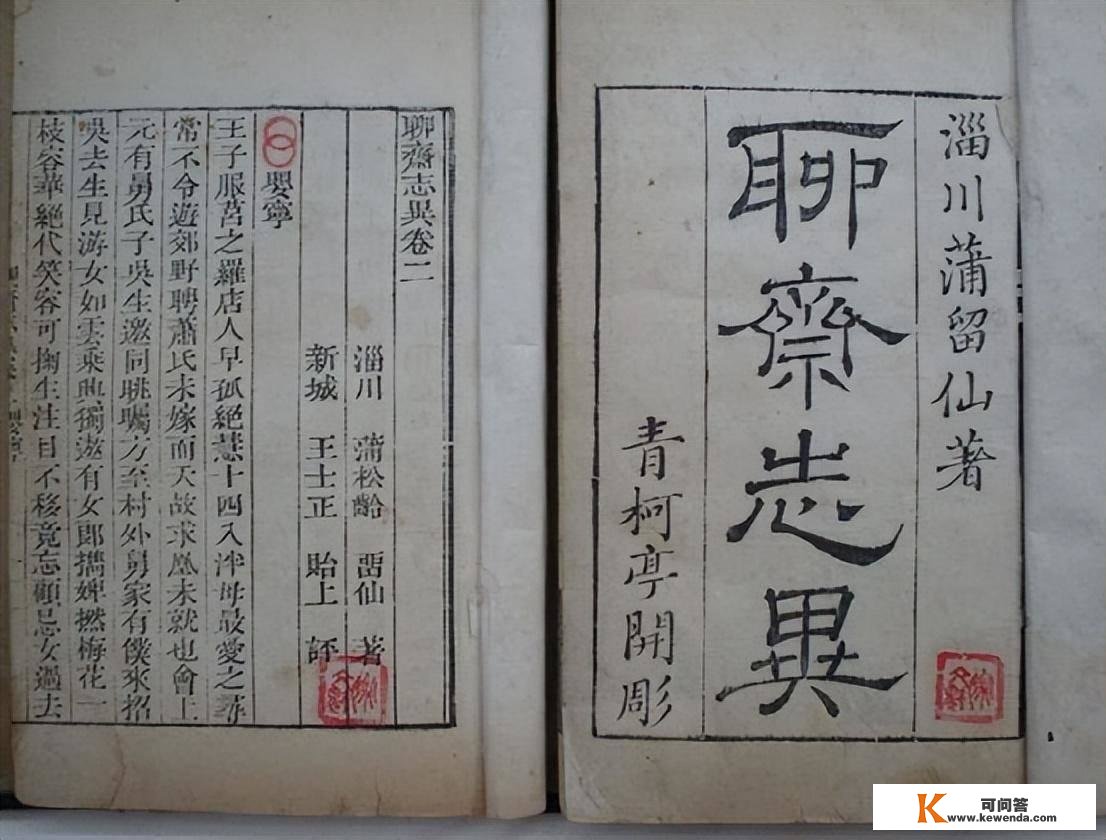 淄川蒲留仙著
聊齋志異
青柯亭開彫
聊齋志異卷二
淄川 蒲松齡 畱仙 著
新城 王士正 貽上 評
嬰寧
王子服莒之羅店人早孤絕慧十四入泮母最愛之尋
常不令遊郊野聘蕭氏未嫁而夭故求凰未就也會上
元有舅氏子吳生邀同眺矚方至村外舅家有僕來招
吳去生見游女如雲乘興獨遨有女郎攜婢撚梅花一
枝容華絕代笑容可掬生注目不移竟忘顧忌女過去
K 可问答
www.kewenda.com